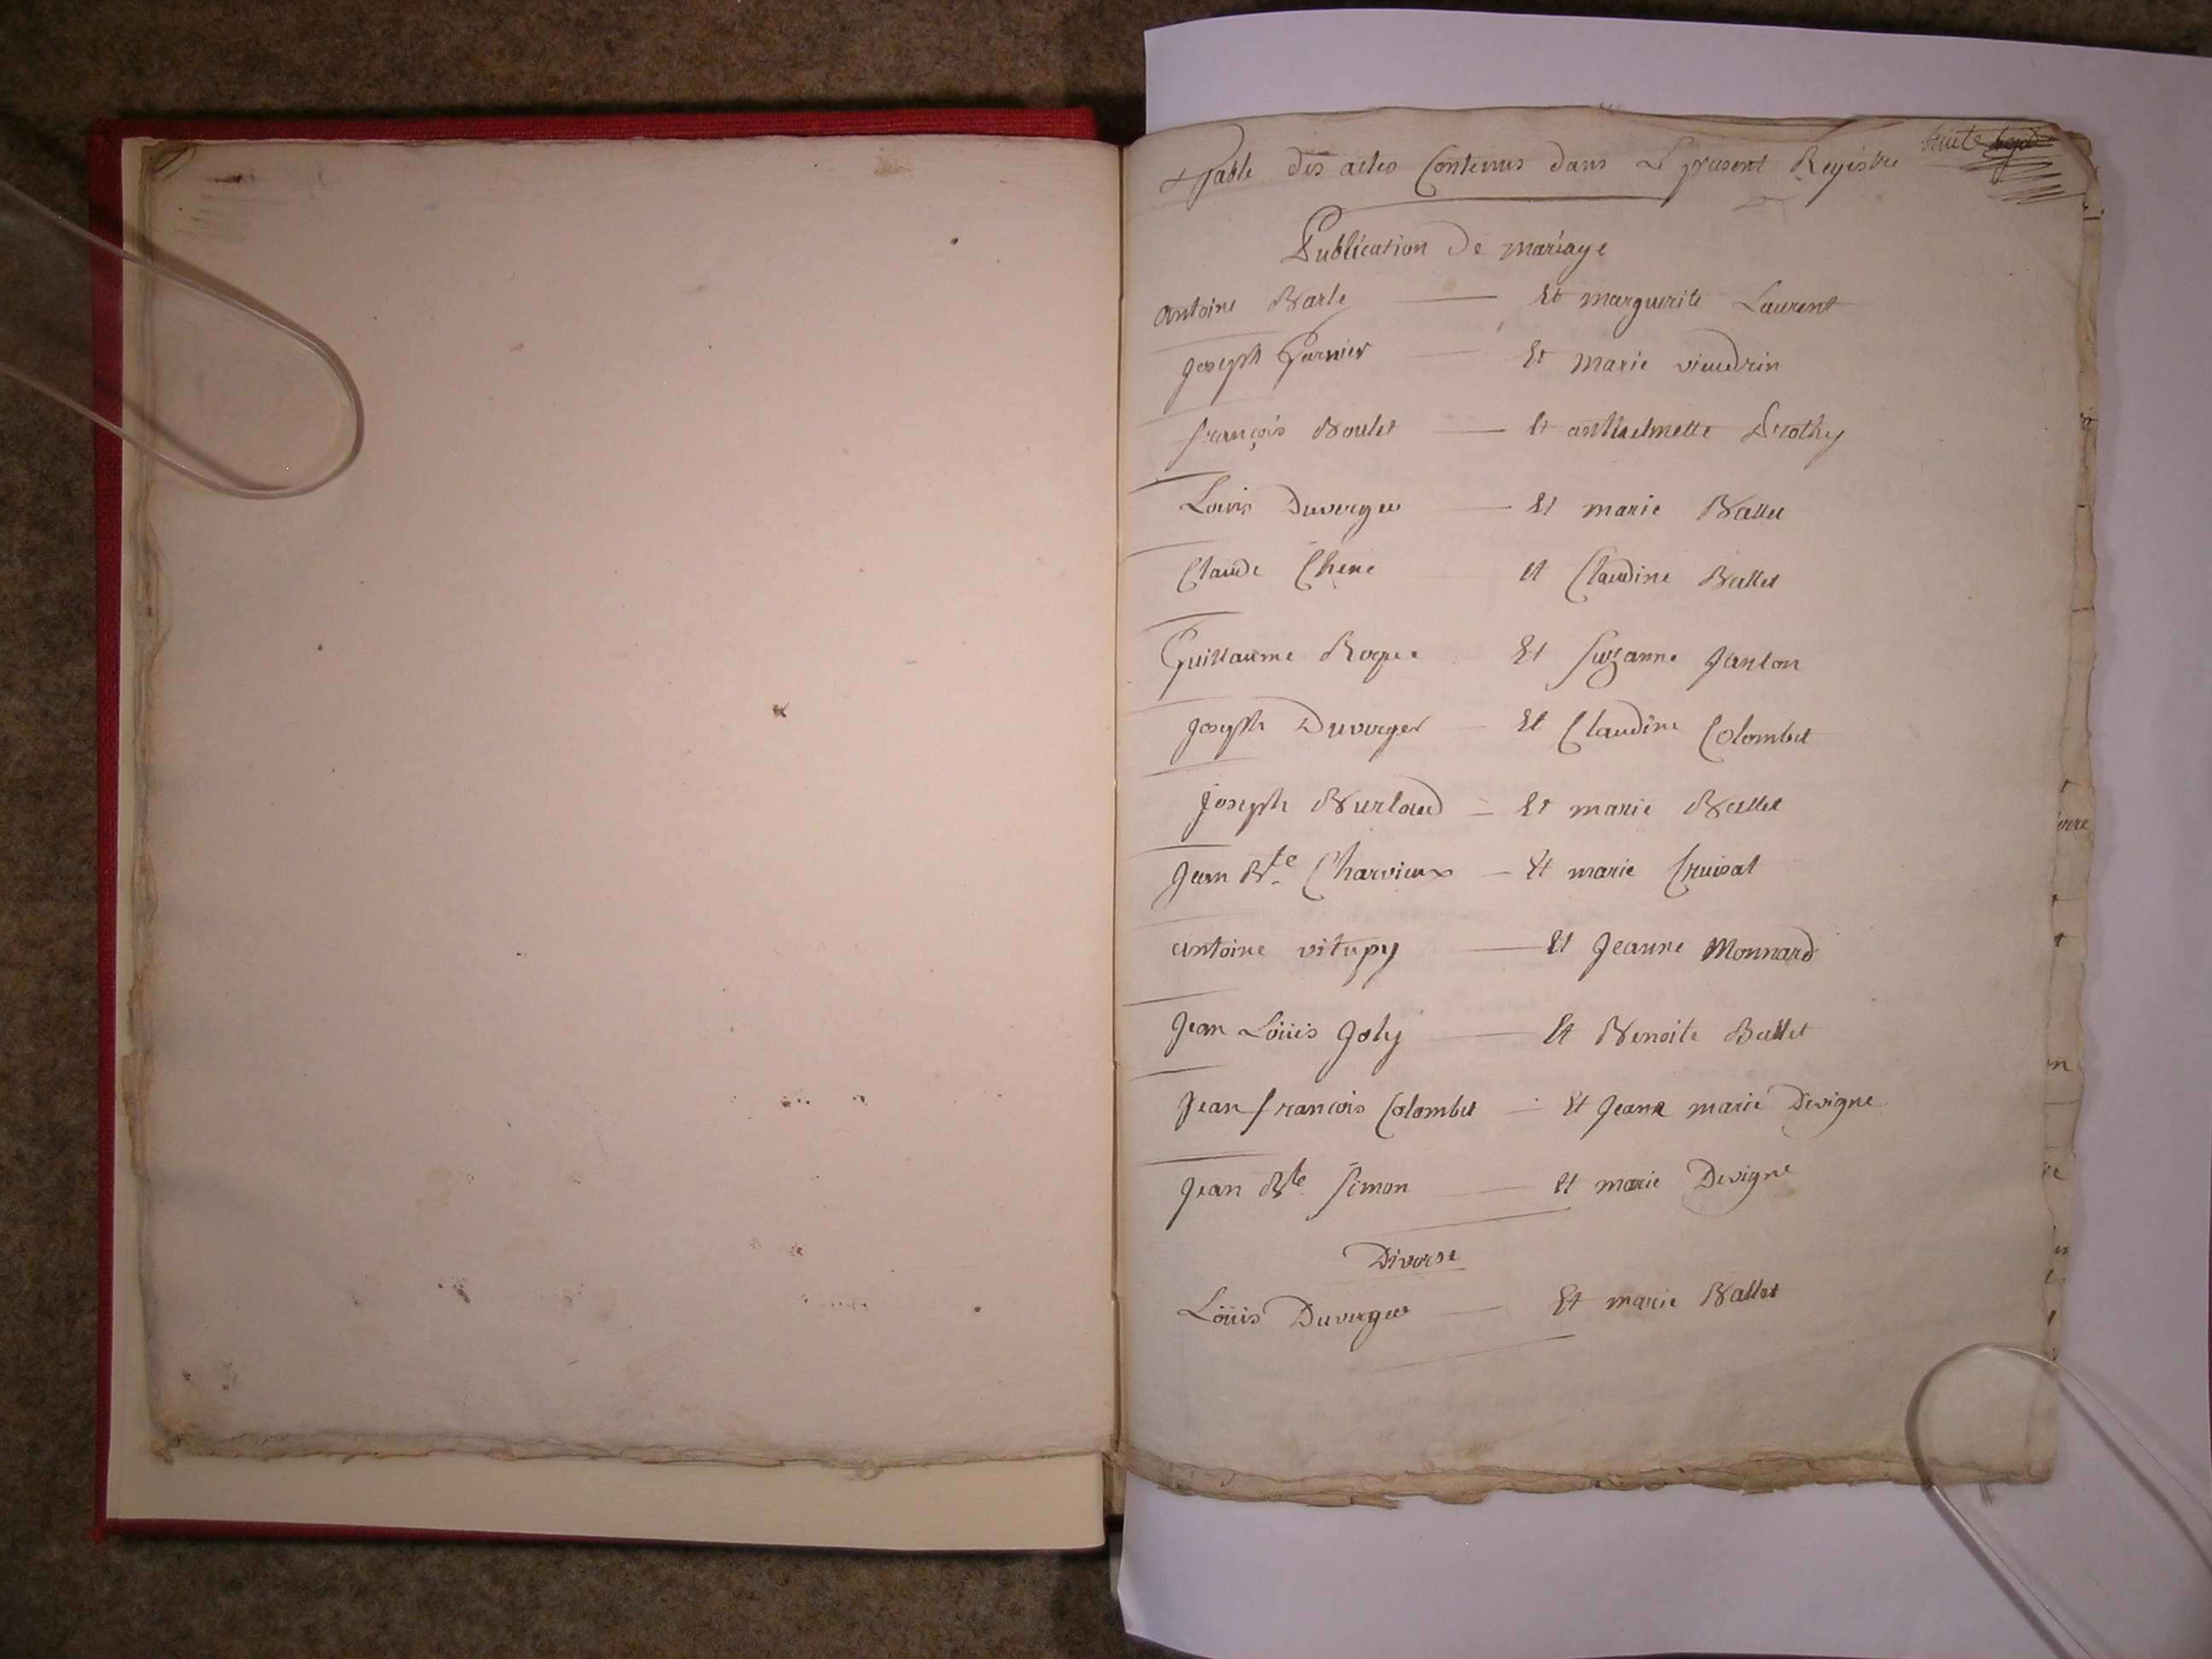 Table des actes Contenus dans Le present Registre
huit
Publication De mariage
antoine Barle — Et marguerite Laurent
Joseph Garnier — Et Marie viendrin
françois Boulet — Et anthelmette Drothy
Louis Duverger — Et marie Ballet
Claude Chene Et Claudine Ballet
Guillaume Et Suzanne Janton
Joseph Duverger — Et Claudine Colombet
Joseph Burland — Et marie Ballet
Jean Bte Charvieux — Et marie Cruisat
antoine vitupy — Et Jeanne Monnard
Jean Loüis Joly — Et Benoite Ballet
Jean françois Colombet — Et Jeane marie Devigne
Jean Bte Simon — Et marie Devigne
Divorse
Loüis Duverger — Et marie Ballet